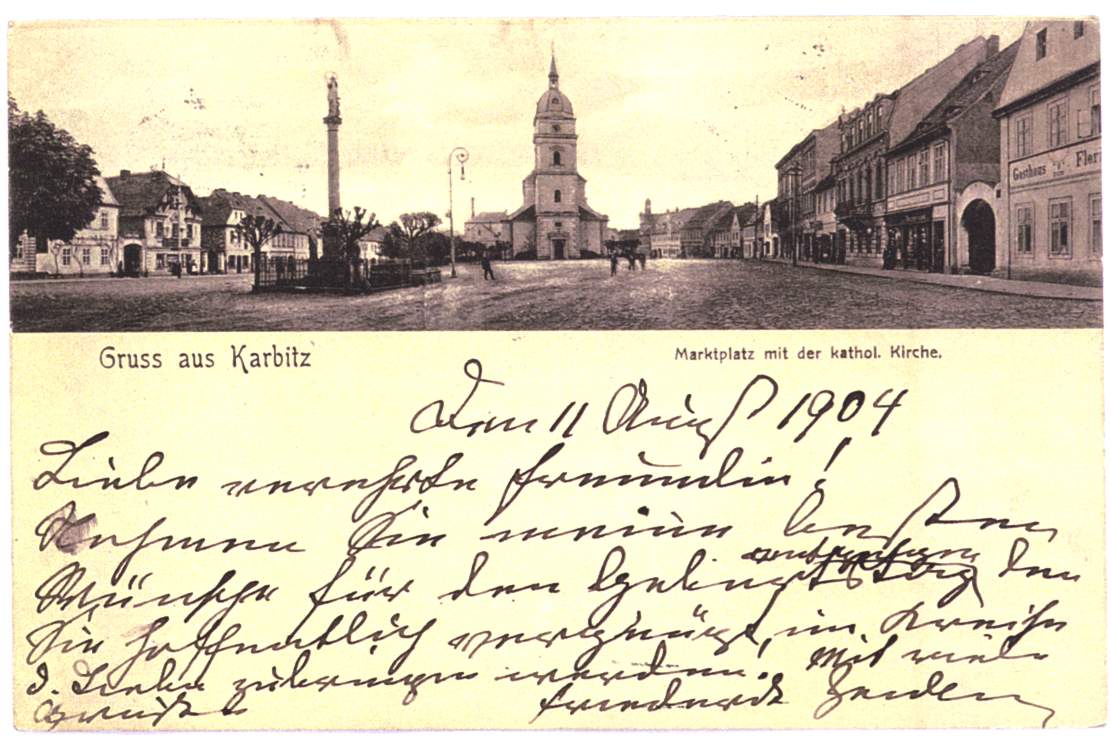 Gasthaus zum Flor
Gruss aus Karbitz
Marktplatz mit der kathol. Kirche.
Den 11 August 1904
Liebe verehrte Freundin!
Nehmen Sie meine besten
Wünsche für den Geburtstag den
Sie hoffentlich vergnügt, im Kreise
d. Lieben zubringen werden. Mit viele
Grüße